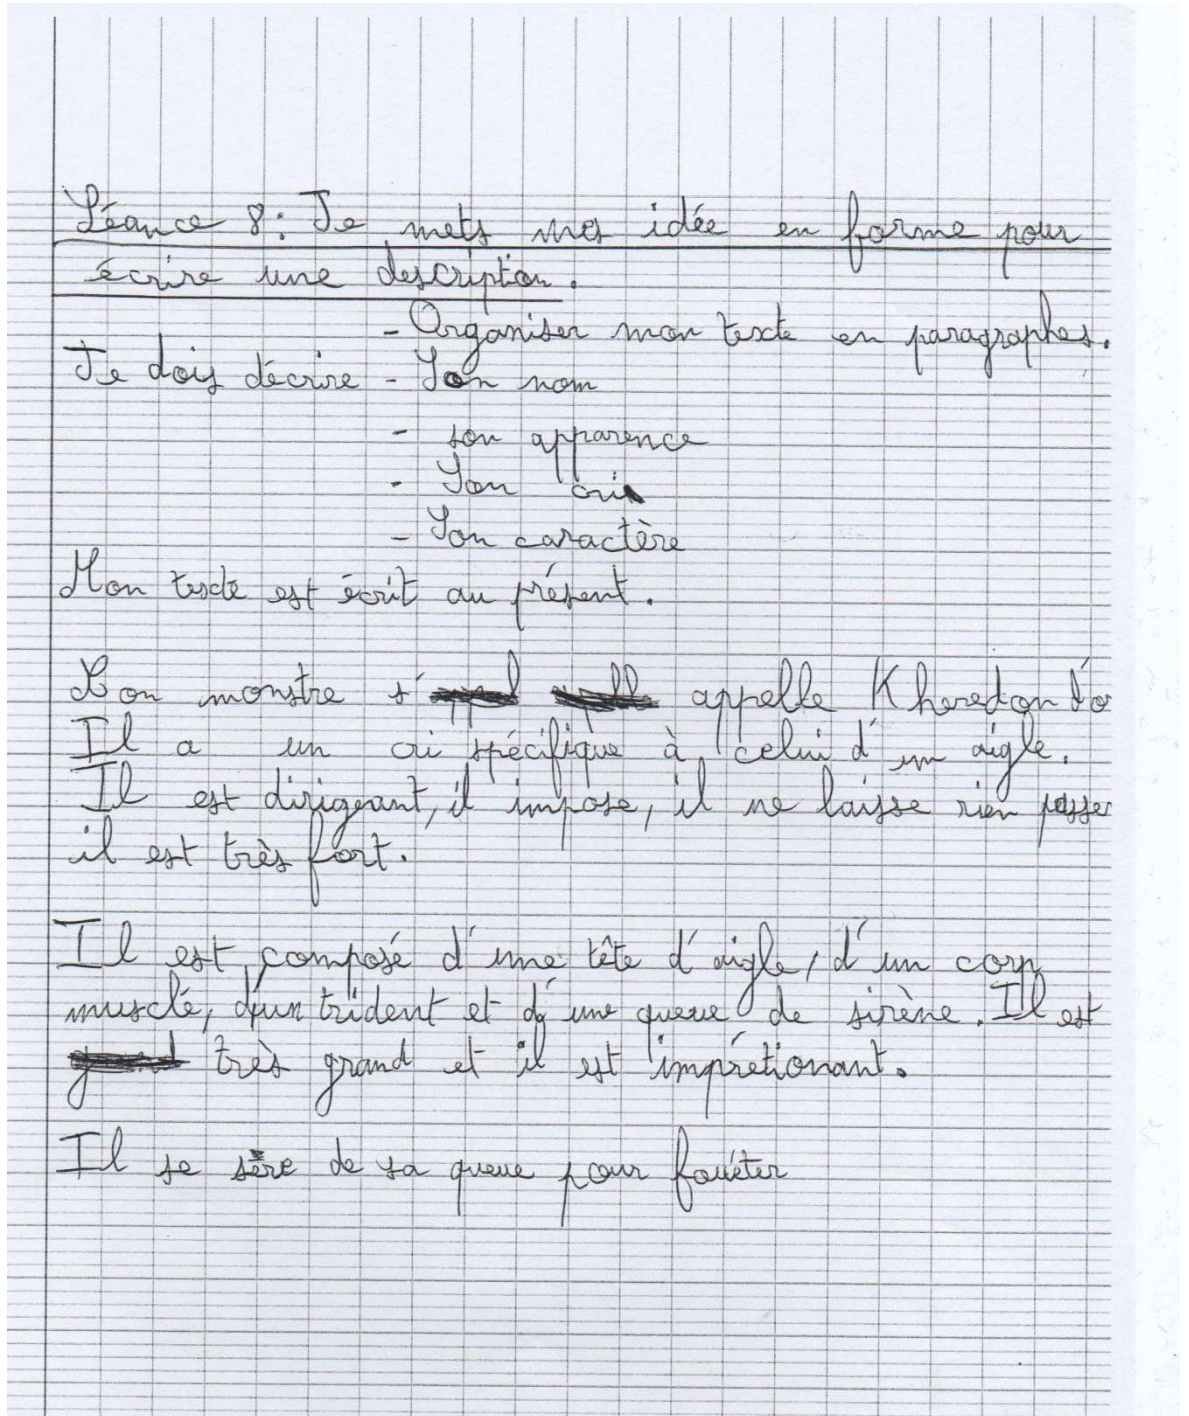 Séance 8: Je mets mes idée en forme pour
écrire une description.
- Organiser mon texte en paragraphes.
Je dois décrire - Son nom
- son apparence
- Son cri
- Son caractère
Mon texte est écrit au présent.
Son monstre s' appelle Kheredon
Il a un cri spécifique à celui d'un aigle.
Il est dirigeant, il impose, il ne laisse rien passer
il est très fort.
Il est composé d'une tête d'aigle, d'un corp
musclé, d'un trident et d'une queue de sirène. Il est
très grand et il est imprétionant.
Il se sère de sa queue pour fouéter